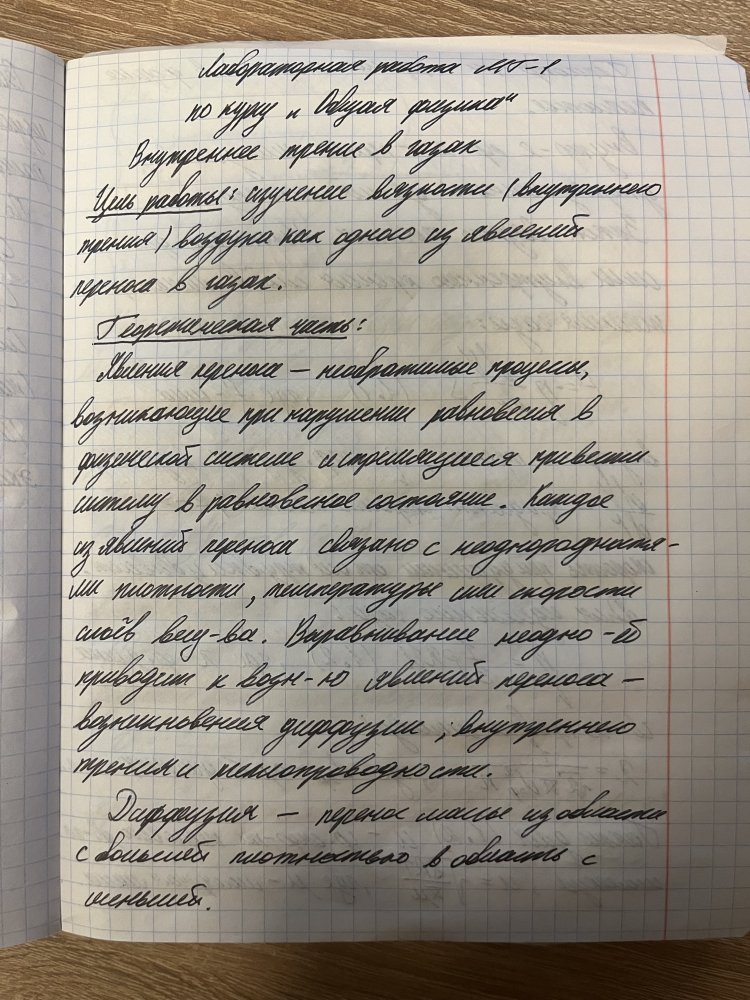 Лабораторная работа МТ-1
по курсу "Общая физика"
Внутреннее трение в газах
Цель работы: изучение вязкости (внутреннего
трения) воздуха как одного из явлений
переноса в газах.
Теоретическая часть:
Явления переноса — необратимые процессы,
возникающие при нарушении равновесия в
физической системе и стремящиеся привести
систему в равновесное состояние. Каждое
из явлений переноса связано с неоднородностя-
ми плотности, температуры или скорости
слоёв вещ-ва. Выравнивание неодно-ей
приводит к возн-ю явлений переноса —
возникновения диффузии, внутреннего
трения и теплопроводности.
Диффузия — перенос массы из области
с большей плотностью в область с
меньшей.